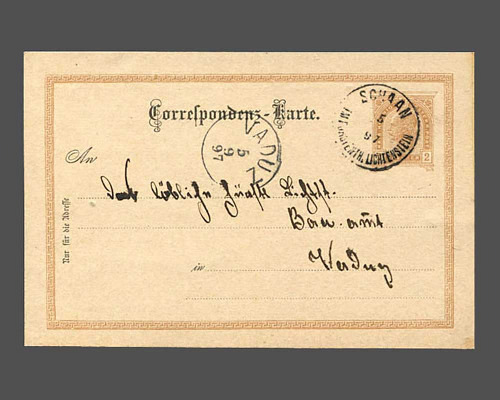 SCHAAN
5
97
FÜRSTENTH. LICHTENSTEIN
2
Correspondenz-Karte.
VADUZ
5
9
97
An
löbliche fürstl. Lichtst.
Bau-amt
in Vaduz
Nur für die Adresse